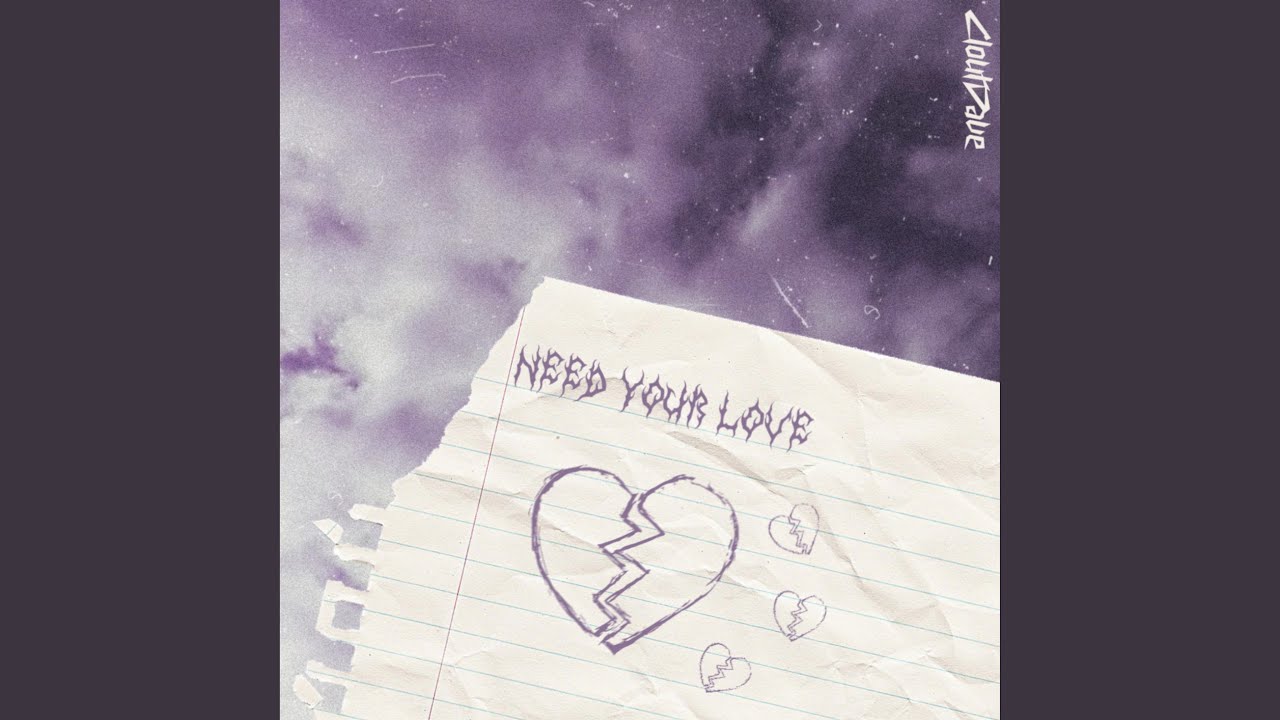 CloutDave
NEED YOUR LOVE